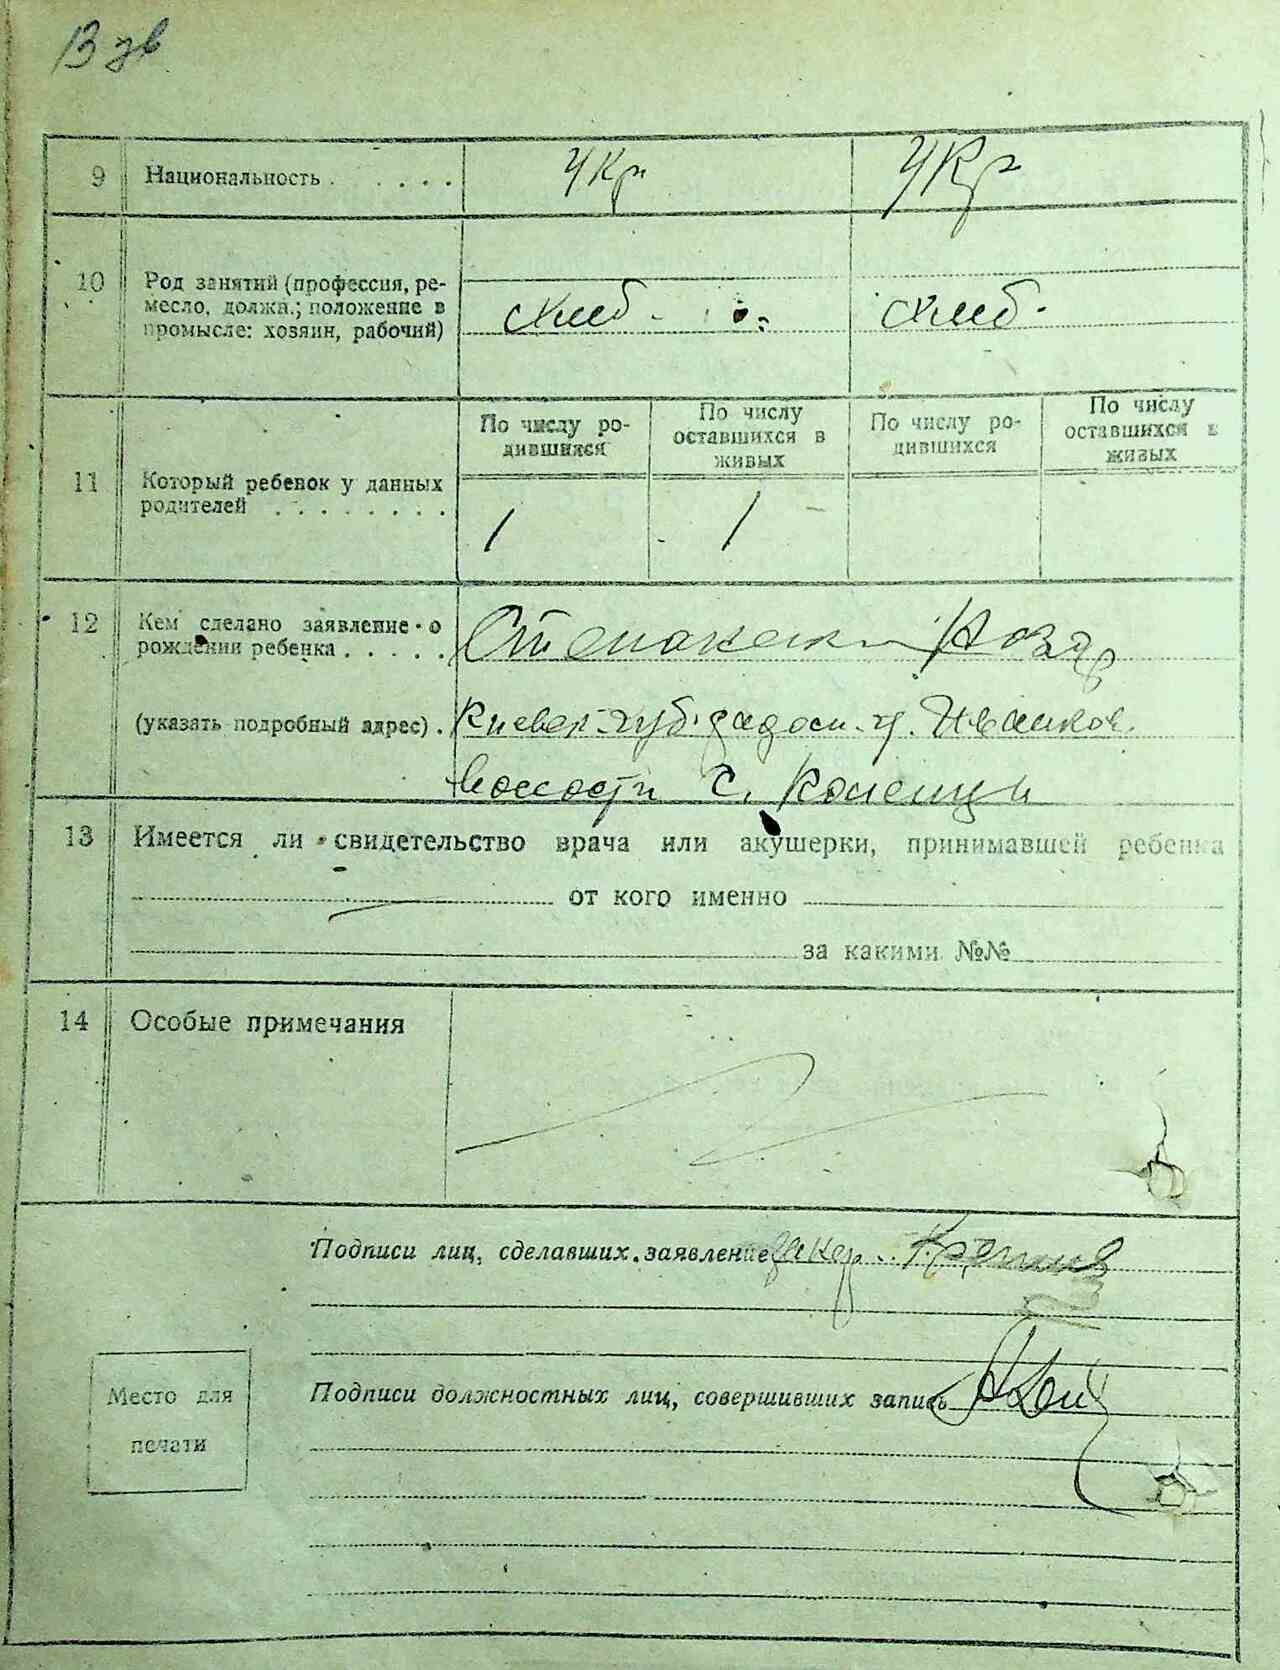 13 зв
9 Национальность . . . . . Укр Укр
10 Род занятий (профессия, ре-
месло, должн.; положение в
промысле: хозяин, рабочий) хлеб. хлеб.
По числу ро-
дившихся
По числу
оставшихся в
живых
По числу ро-
дившихся
По числу
оставшихся в
живых
11 Который ребенок у данных
родителей . . . . . . . . 1 1
12 Кем сделано заявление о
рождении ребенка . . . . .
(указать подробный адрес) . Киевск. губ. у. Иванков.
волости с.
13 Имеется ли свидетельство врача или акушерки, принимавшей ребенка
от кого именно
за какими №№
14 Особые примечания
Подписи лиц, сделавших заявление
Подписи должностных лиц, совершивших запись
Место для
печати